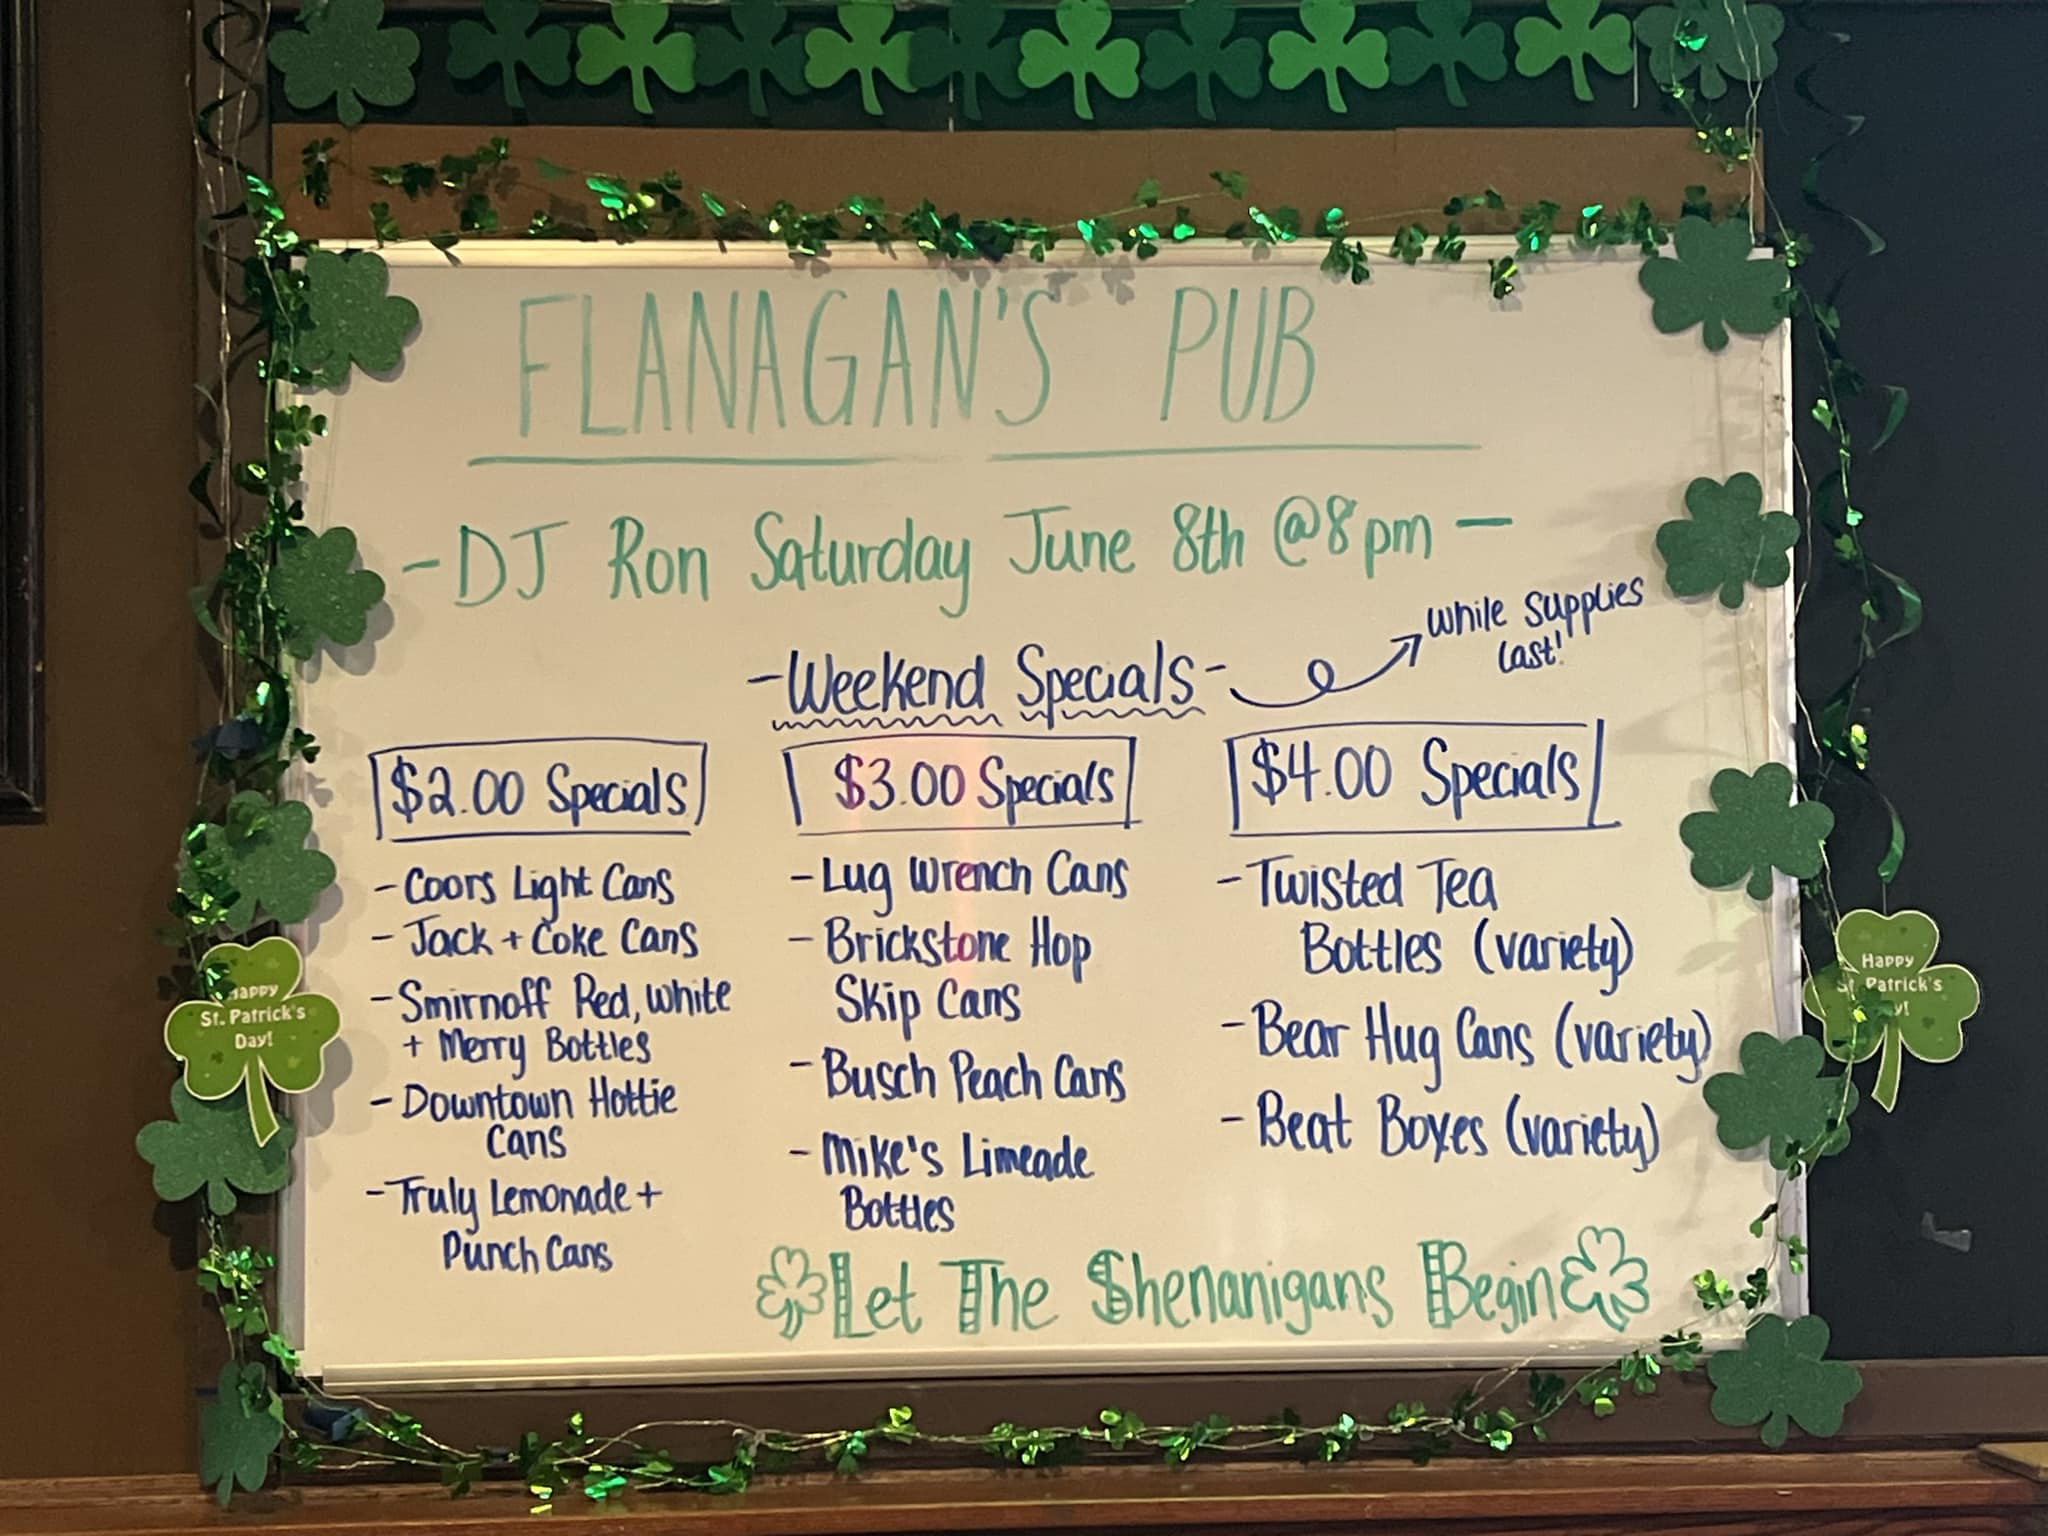 FLANAGAN'S PUB
- DJ Ron Saturday June 8th @8pm -
- Weekend Specials -
while supplies
last!
$2.00 Specials
- Coors Light Cans
- Jack + Coke Cans
- Smirnoff Red, white
+ Merry Bottles
- Downtown Hottie
Cans
- Truly Lemonade +
Punch Cans
$3.00 Specials
- Lug Wrench Cans
- Brickstone Hop
Skip Cans
- Busch Peach Cans
- Mike's Limeade
Bottles
$4.00 Specials
- Twisted Tea
Bottles (variety)
- Bear Hug Cans (variety)
- Beat Boxes (variety)
Let The Shenanigans Begin
Happy
St. Patrick's
Day!
Happy
St. Patrick's